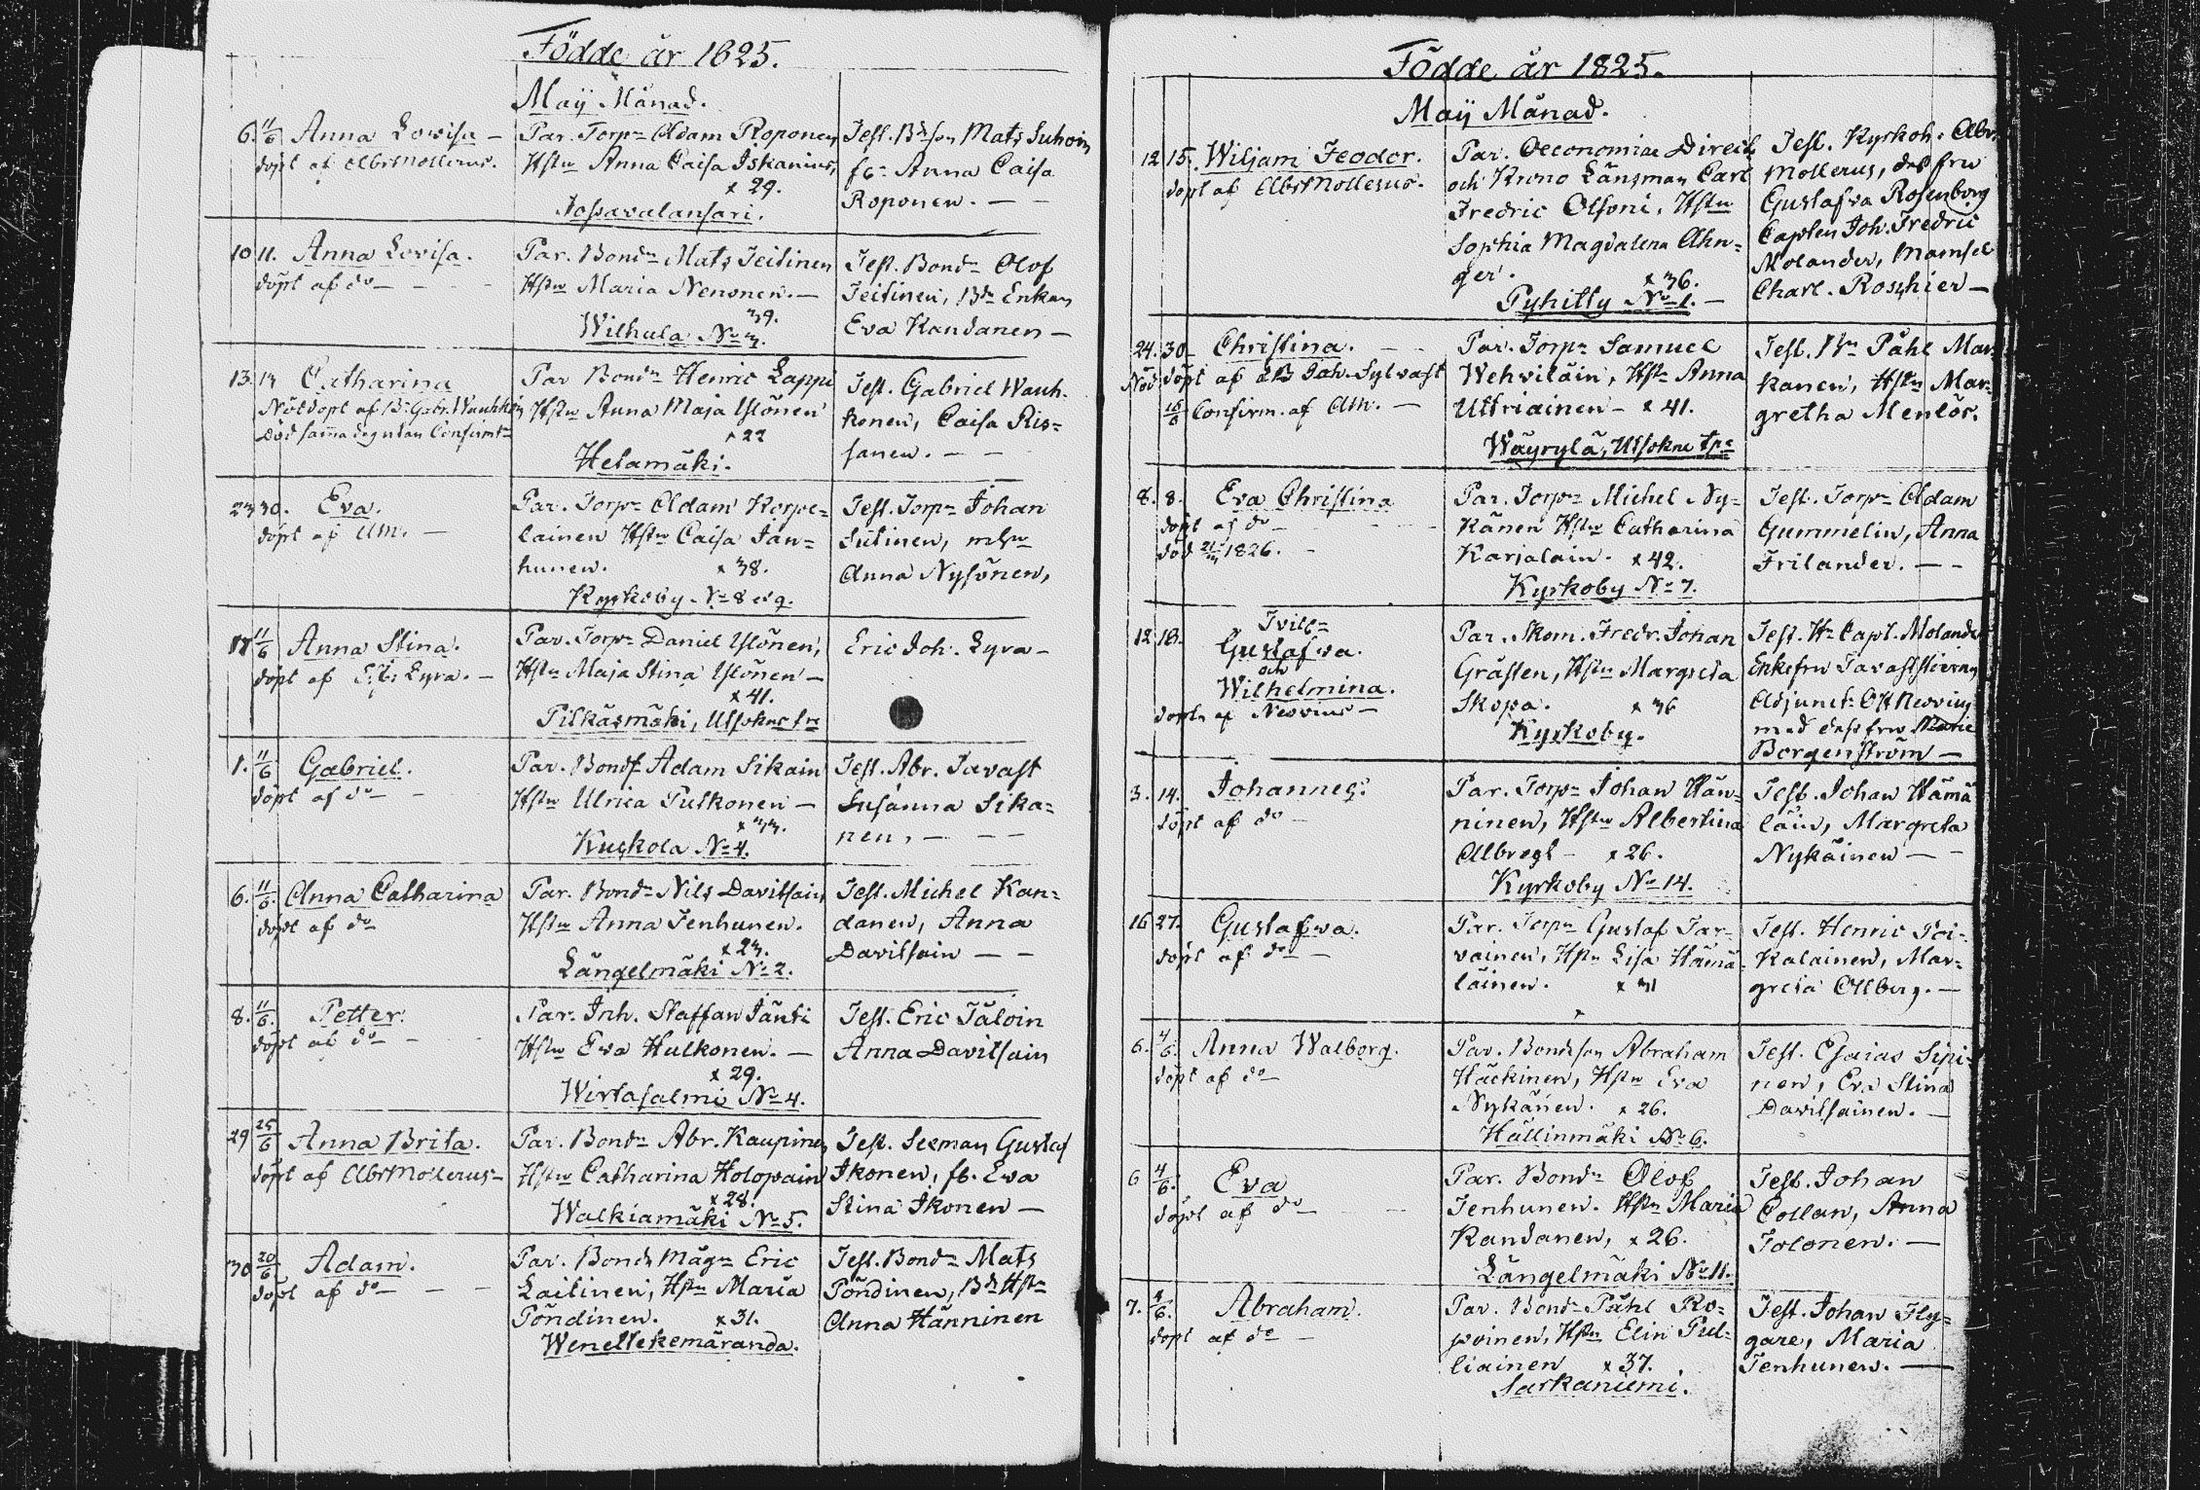 Födde år 1825.
Maÿ Månad.
6. 11/6 Anna Lowisa —
döpt af Albr Mollerus.
Par. Torp:n Adam Roponen,
Hstu Anna Caisa Iskanius,
x 29.
Tossavalansari.
Test. B:dson Mats Suhoin
f6: Anna Caisa
Roponen. — —
10 11. Anna Lovisa.
döpt af do — - - -
Par. Bond:n Mats Teitinen
Hstu Maria Nenonen. —
39.
Wilhula No 3.
Test. Bond:n Olof
Teitinen, B:d Enkan
Eva Kandanen —
13. 13 Catharina
Nöddöpt af B: Gabr. Wauhkoin
död samma dag utan Confirmt:n
Par Bond:n Henric Lappi
Hstu Anna Maja Ylönen
x 22
Helamäki.
Test. Gabriel Wauh-
konen, Caisa Ris=
sanen. — —
23 30. Eva.
döpt af Um. —
Par. Torp:n Adam Korpe=
lainen Hstu Caisa Jän=
hunen. x 38.
Kyrkoby No 8 o 9.
Test. Torp:n Johan
Sutinen, m hu
Anna Nysönen,
17 11/6 Anna Stina.
döpt af E. J. Lyra. —
Par. Torp:n Daniel Ylönen,
Hstu Maja Stina Ylönen —
x 41.
Pitkäsmäki, Utsokne frs
Eric Joh. Lyra —
1. 11/6 Gabriel.
döpt af do — -
Par. Bonds Adam Sikain
Hstu Ulrica Putkonen —
x 33.
Kuskola No 4.
Test. Abr. Tavast
Susanna Sika=
nen, — — —
6. 11/6. Anna Catharina
döpt af do
Par. Bond:n Nils Davitsain
Hstu Anna Tenhunen.
x 23.
Längelmäki No 2.
Test. Michel Kan=
danen, Anna
Davitsain — —
8. 11/6. Petter.
döpt af do — -
Par. Inh. Staffan Jänti
Hstu Eva Hulkonen. —
x 29.
Wirtasalmi No 4.
Test. Eric Jäloin
Anna Davitsain
29 25/6 Anna Brita.
döpt af Albr Mollerus —
Par. Bond:n Abr. Kaupinen
Hstu Catharina Holopain
x 28.
Walkiamäki No 5.
Test. Seeman Gustaf
Ikonen, f6. Eva
Stina Ikonen —
30 20/6 Adam.
döpt af do — — —
Par. Bonds Måg:n Eric
Laitinen, Hstu Maria
Pöndinen. x 31.
Wenettekemäranda.
Test. Bond:n Mats
Pöndinen, B:d Hstu
Anna Hänninen
Födde år 1825.
Maÿ Månad.
12 15. Wiljam Feodor.
döpt af Albr Mollerus.
Par. Oeconomiae Direct
och Krono Länsman Carl
Fredric Olsoni, Hstu
Sophia Magdalena Ahn=
ger. x 36.
Pyhitty No 1. —
Test. Kyrkoh: Abr.
Mollerus, dess fru
Gustafva Rosenborg
Capten Joh. Fredric
Molander, Mamsel
Charl. Roschier —
24. 30 Christina. — —
Nöd döpt af Joh. Sylvast
16/6 Confirm. af Um. —
Par. Torp:n Samuel
Wehviläin, Hstu Anna
Uttriainen — x 41.
Wäyrylä, Utsokne
Test. B:n Påhl Mar-
kanen, Hstu Mar=
gretha Menlös.
8. 8. Eva Christina
döpt af do — —
död 21/3 1826. —
Par. Torp:n Michel Ny=
känen Hstu Catharina
Karjalain. x 42.
Kyrkoby No 7.
Test. Torp:n Adam
Gummelin, Anna
Frilander. — —
12 18. Tvill:
Gustafva.
och
Wilhelmina.
döpta af Neovius —
Par. Skom. Fredr. Johan
Gråsten, Hstu Margreta
Skopa. x 36
Kyrkoby.
Test. H: Capt. Molander
Enkefru Tavaststierna
Adjunct: Ott Neovius
med dess fru Marie
Borgenström —
3. 14. Johannes.
döpt af do —
Par. Torp:n Johan Hän=
ninen, Hstu Albertina
Albregt — x 26.
Kyrkoby No 14.
Test. Johan Hämä
läin, Margreta
Nykäinen — —
16 27. Gustafva.
döpt af do —
Par. Torp:n Gustaf Tar=
vainen, Hstu Lisa Hämä=
läinen. x 31
Test. Henric Poi=
kalainen, Mar=
greta Ollberg. —
6. 4/6. Anna Walborg.
döpt af do —
Par. Bondeson Abraham
Häckinen, Hstu Eva
Nykänen. x 26.
Hällinmäki No 6.
Test. Esaias Sepi=
nen, Eva Stina
Davitsainen. —
6 4/6. Eva
döpt af do — —
Par. Bond:n Olof
Tenhunen. Hstu Maria
Kandanen, x 26.
Längelmäki No 11.
Test. Johan
Collan, Anna
Tolonen. —
7. 4/6. Abraham.
döpt af do —
Par. Bond:n Påhl Ro=
poinen, Hstu Elin Pul=
liainen x 37.
Sarkaniemi.
Test. Johan Fly=
gare, Maria
Tenhunen. —